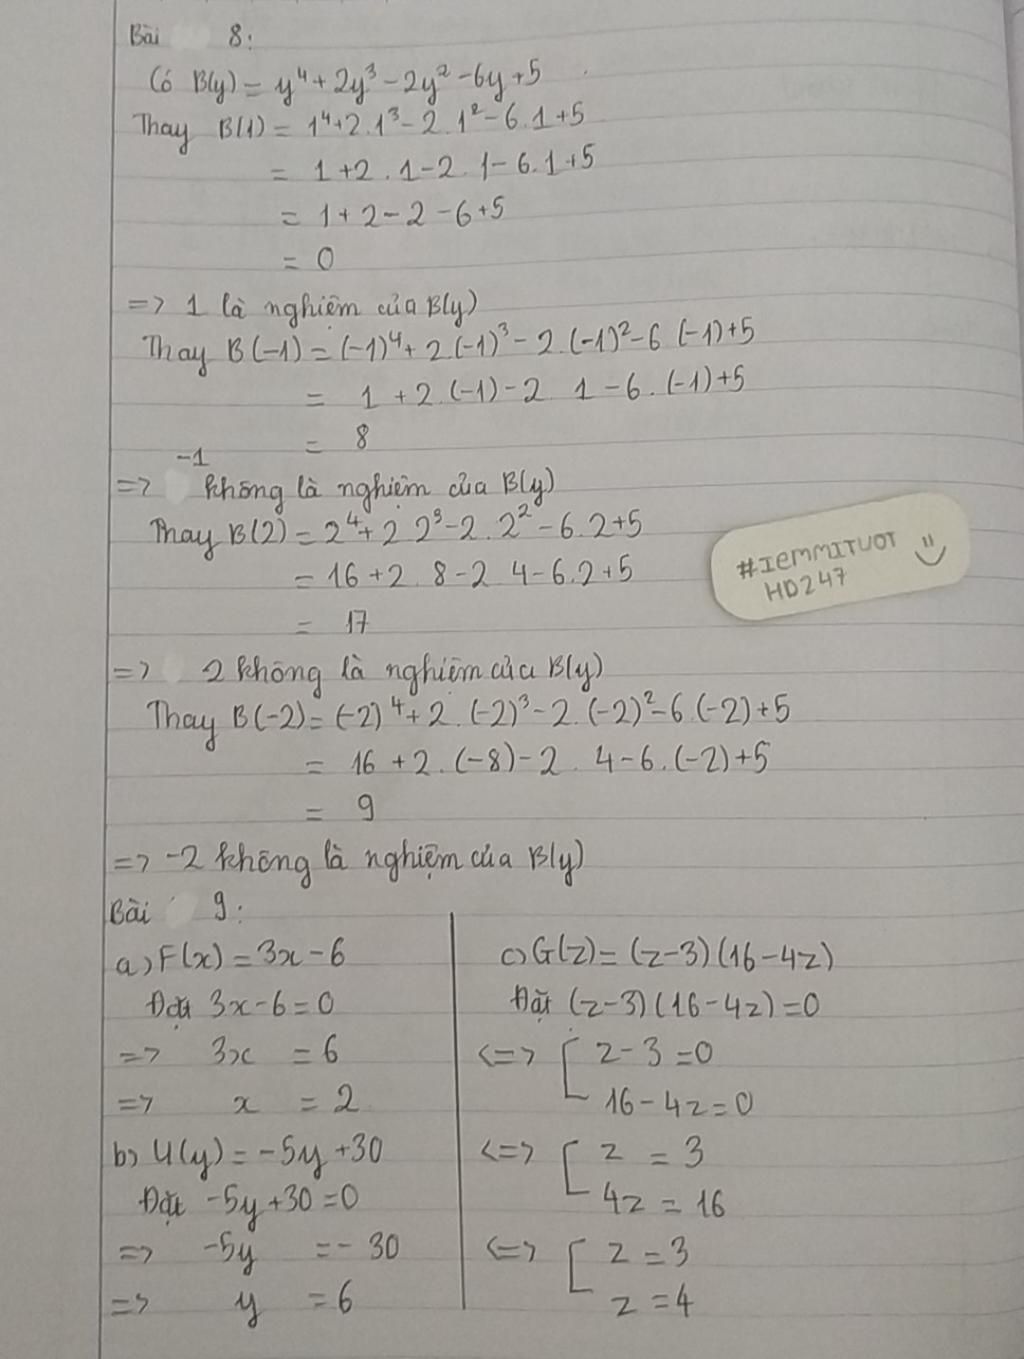 Bài 8:
Có B(y) = y⁴ + 2y³ - 2y² - 6y + 5
Thay B(1) = 1⁴ + 2.1³ - 2.1² - 6.1 + 5
= 1 + 2.1 - 2.1 - 6.1 + 5
= 1 + 2 - 2 - 6 + 5
= 0
=> 1 là nghiệm của B(y)
Thay B(-1) = (-1)⁴ + 2.(-1)³ - 2.(-1)² - 6 (-1) + 5
= 1 + 2.(-1) - 2 1 - 6.(-1) + 5
= 8
=> -1 không là nghiệm của B(y)
Thay B(2) = 2⁴ + 2 2³ - 2.2² - 6.2 + 5
= 16 + 2 8 - 2 4 - 6.2 + 5
= 17
#IEMMITUOT
HD247
=> 2 không là nghiệm của B(y)
Thay B(-2) = (-2)⁴ + 2.(-2)³ - 2.(-2)² - 6.(-2) + 5
= 16 + 2.(-8) - 2.4 - 6.(-2) + 5
= 9
=> -2 không là nghiệm của B(y)
Bài 9:
a) F(x) = 3x - 6
Đặt 3x - 6 = 0
=> 3x = 6
=> x = 2
b) U(y) = -5y + 30
Đặt -5y + 30 = 0
=> -5y = - 30
=> y = 6
c) G(z) = (z - 3)(16 - 4z)
Đặt (z - 3)(16 - 4z) = 0
<=> [ z - 3 = 0
16 - 4z = 0
<=> [ z = 3
4z = 16
<=> [ z = 3
z = 4